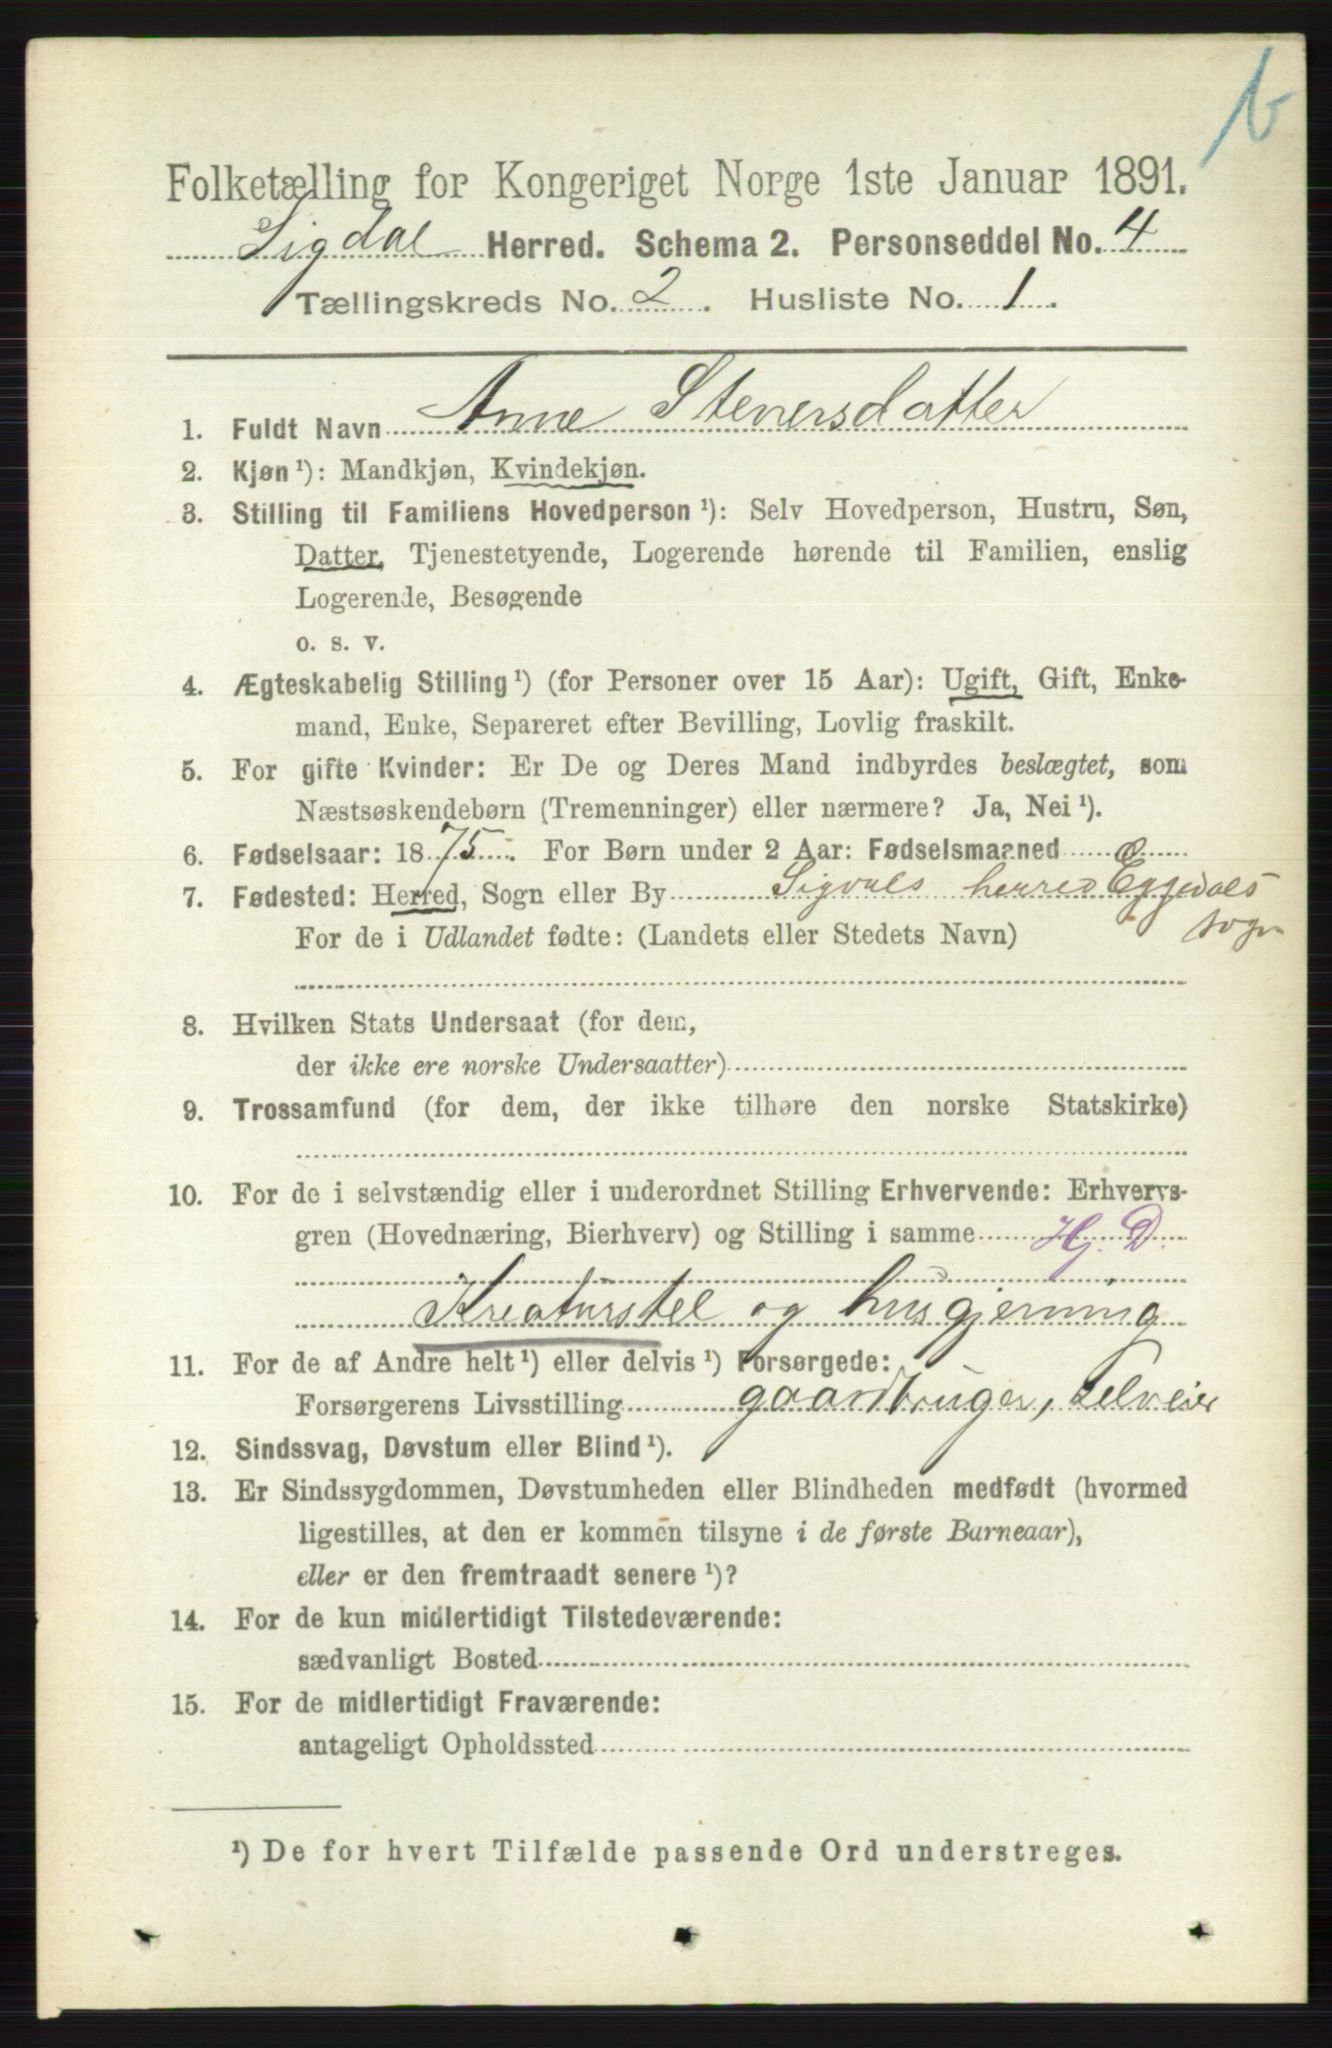 b
Folketælling for Kongeriget Norge 1ste Januar 1891.
Sigdal Herred. Schema 2. Personseddel No. 4
Tællingskreds No. 2. Husliste No. 1.
1. Fuldt Navn Anne Stenersdatter
2. Kjøn ¹): Mandkjøn, Kvindekjøn.
3. Stilling til Familiens Hovedperson ¹): Selv Hovedperson, Hustru, Søn,
Datter, Tjenestetyende, Logerende hørende til Familien, enslig
Logerende, Besøgende
o. s. v.
4. Ægteskabelig Stilling ¹) (for Personer over 15 Aar): Ugift, Gift, Enke-
mand, Enke, Separeret efter Bevilling, Lovlig fraskilt.
5. For gifte Kvinder: Er De og Deres Mand indbyrdes beslægtet, som
Næstsøskendebørn (Tremenninger) eller nærmere? Ja, Nei ¹).
6. Fødselsaar: 1875. For Børn under 2 Aar: Fødselsmaaned
7. Fødested: Herred, Sogn eller By Sigdals herred Eggedals
sogn
For de i Udlandet fødte: (Landets eller Stedets Navn)
8. Hvilken Stats Undersaat (for dem,
der ikke ere norske Undersaatter)
9. Trossamfund (for dem, der ikke tilhøre den norske Statskirke)
10. For de i selvstændig eller i underordnet Stilling Erhvervende: Erhvervs-
gren (Hovednæring, Bierhverv) og Stilling i samme Hj. D.
Kreaturstel og husgjerning
11. For de af Andre helt ¹) eller delvis ¹) Forsørgede:
Forsørgerens Livsstilling gaardbruger, selveier
12. Sindssvag, Døvstum eller Blind ¹).
13. Er Sindssygdommen, Døvstumheden eller Blindheden medfødt (hvormed
ligestilles, at den er kommen tilsyne i de første Barneaar),
eller er den fremtraadt senere ¹)?
14. For de kun midlertidigt Tilstedeværende:
sædvanligt Bosted
15. For de midlertidigt Fraværende:
antageligt Opholdssted
¹) De for hvert Tilfælde passende Ord understreges.